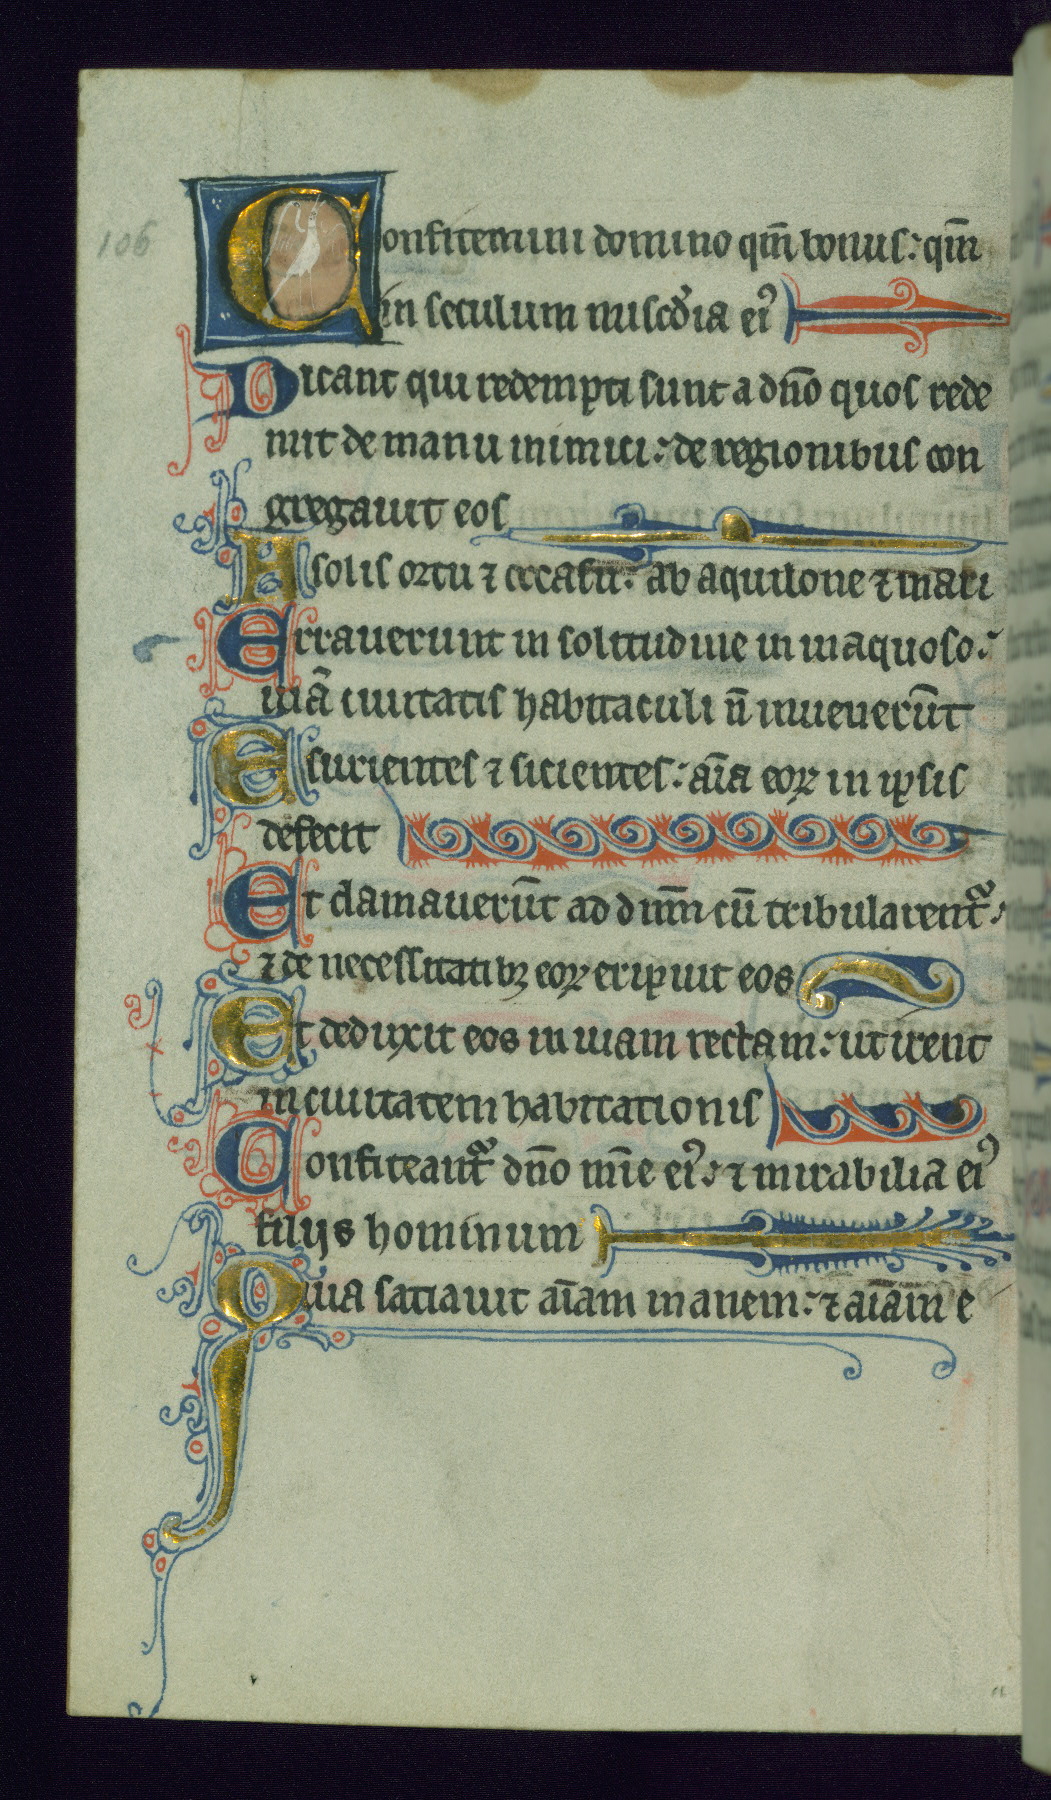 106
Confitemini domino qm̄ bonus: qm̄
in seculum misc̄dia ei᾿
Dicant qui redempti sunt a dn̄o quos rede
mit de manu inimici: de regionibus con
gregauit eos
A solis ortu ⁊ occasu: ab aquilone ⁊ mari
Errauerunt in solitudine in inaquoso:
uiā ciuitatis habitaculi n̄ inuenerūt
Esurientes ⁊ sicientes: aīa eoꝝ in ipsis
defecit
Et clamauerūt ad dn̄m cū tribularent᷑:
⁊ de necessitatibꝫ eoꝝ eripuit eos
Et deduxit eos in uiam rectam: ut irent
in ciuitatem habitationis
Confiteant᷑ dn̄o mīe ei᾿: ⁊ mirabilia ei᾿
filijs hominum
Quia satiauit aīam inanem: ⁊ aīam e